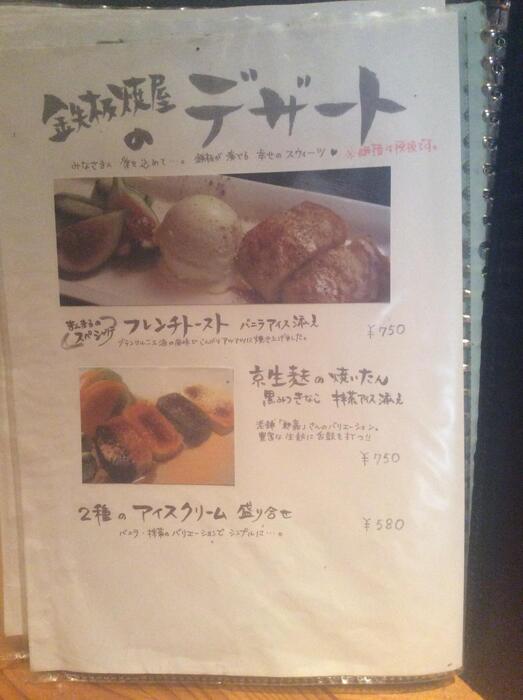 鉄板焼屋
の デザート
みなさまへ 愛を込めて…。鉄板が奏でる 幸せのスウィーツ♥
まんまるの
スペシャリテ
フレンチトースト バニラアイス添え ¥750
の風味でこんがりアツアツに焼き上げました。
京生麩の焼いたん
黒みつきなこ 抹茶アイス添え
老舗「麩嘉」さんのバリエーション。
豊富な生麩に舌鼓を打つ!!
¥750
2種のアイスクリーム 盛り合せ ¥580
バニラ・抹茶のバリエーションで シンプルに…。